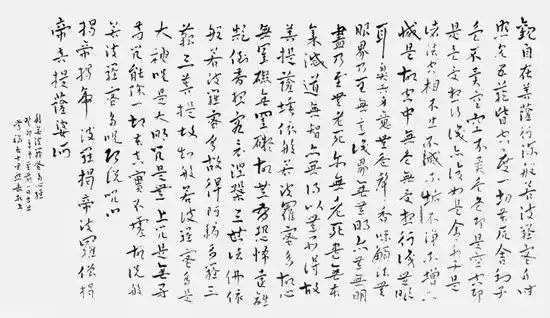 觀自在菩薩行深般若波羅蜜多時
照見五蘊皆空度一切苦厄舍利子
色不異空空不異色色即是空空即
是色受想行識亦復如是舍利子是
諸法空相不生不滅不垢不淨不增不
減是故空中無色無受想行識無眼
耳鼻舌身意無色聲香味觸法無
眼界乃至無意識界無無明亦無無明
盡乃至無老死亦無老死盡無苦
集滅道無智亦無得以無所得故
菩提薩埵依般若波羅蜜多故心
無罣礙無罣礙故無有恐怖遠離
顛倒夢想究竟涅槃三世諸佛依
般若波羅蜜多故得阿耨多羅三
藐三菩提故知般若波羅蜜多是
大神咒是大明咒是無上咒是無等
等咒能除一切苦真實不虛故說般
若波羅蜜多咒即說咒曰
揭帝揭帝 波羅揭帝 波羅僧揭
帝菩提薩婆訶
般若波羅蜜多心經